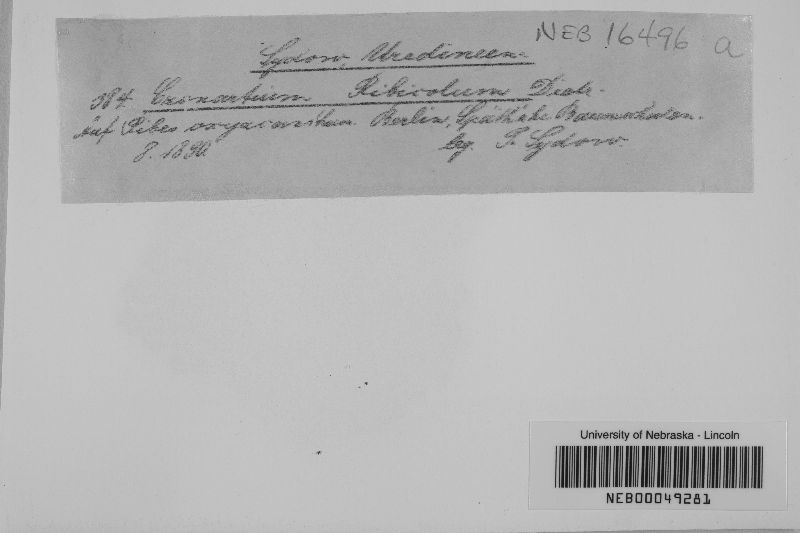 NEB 16496 a
Sydow, Uredineen.
384. Cronartium Ribicolum Dietr.
Auf Ribes oxyacanthum. Berlin, Späth'sche Baumschulen.
8. 1890. leg. P. Sydow.
University of Nebraska - Lincoln
NEB00049281